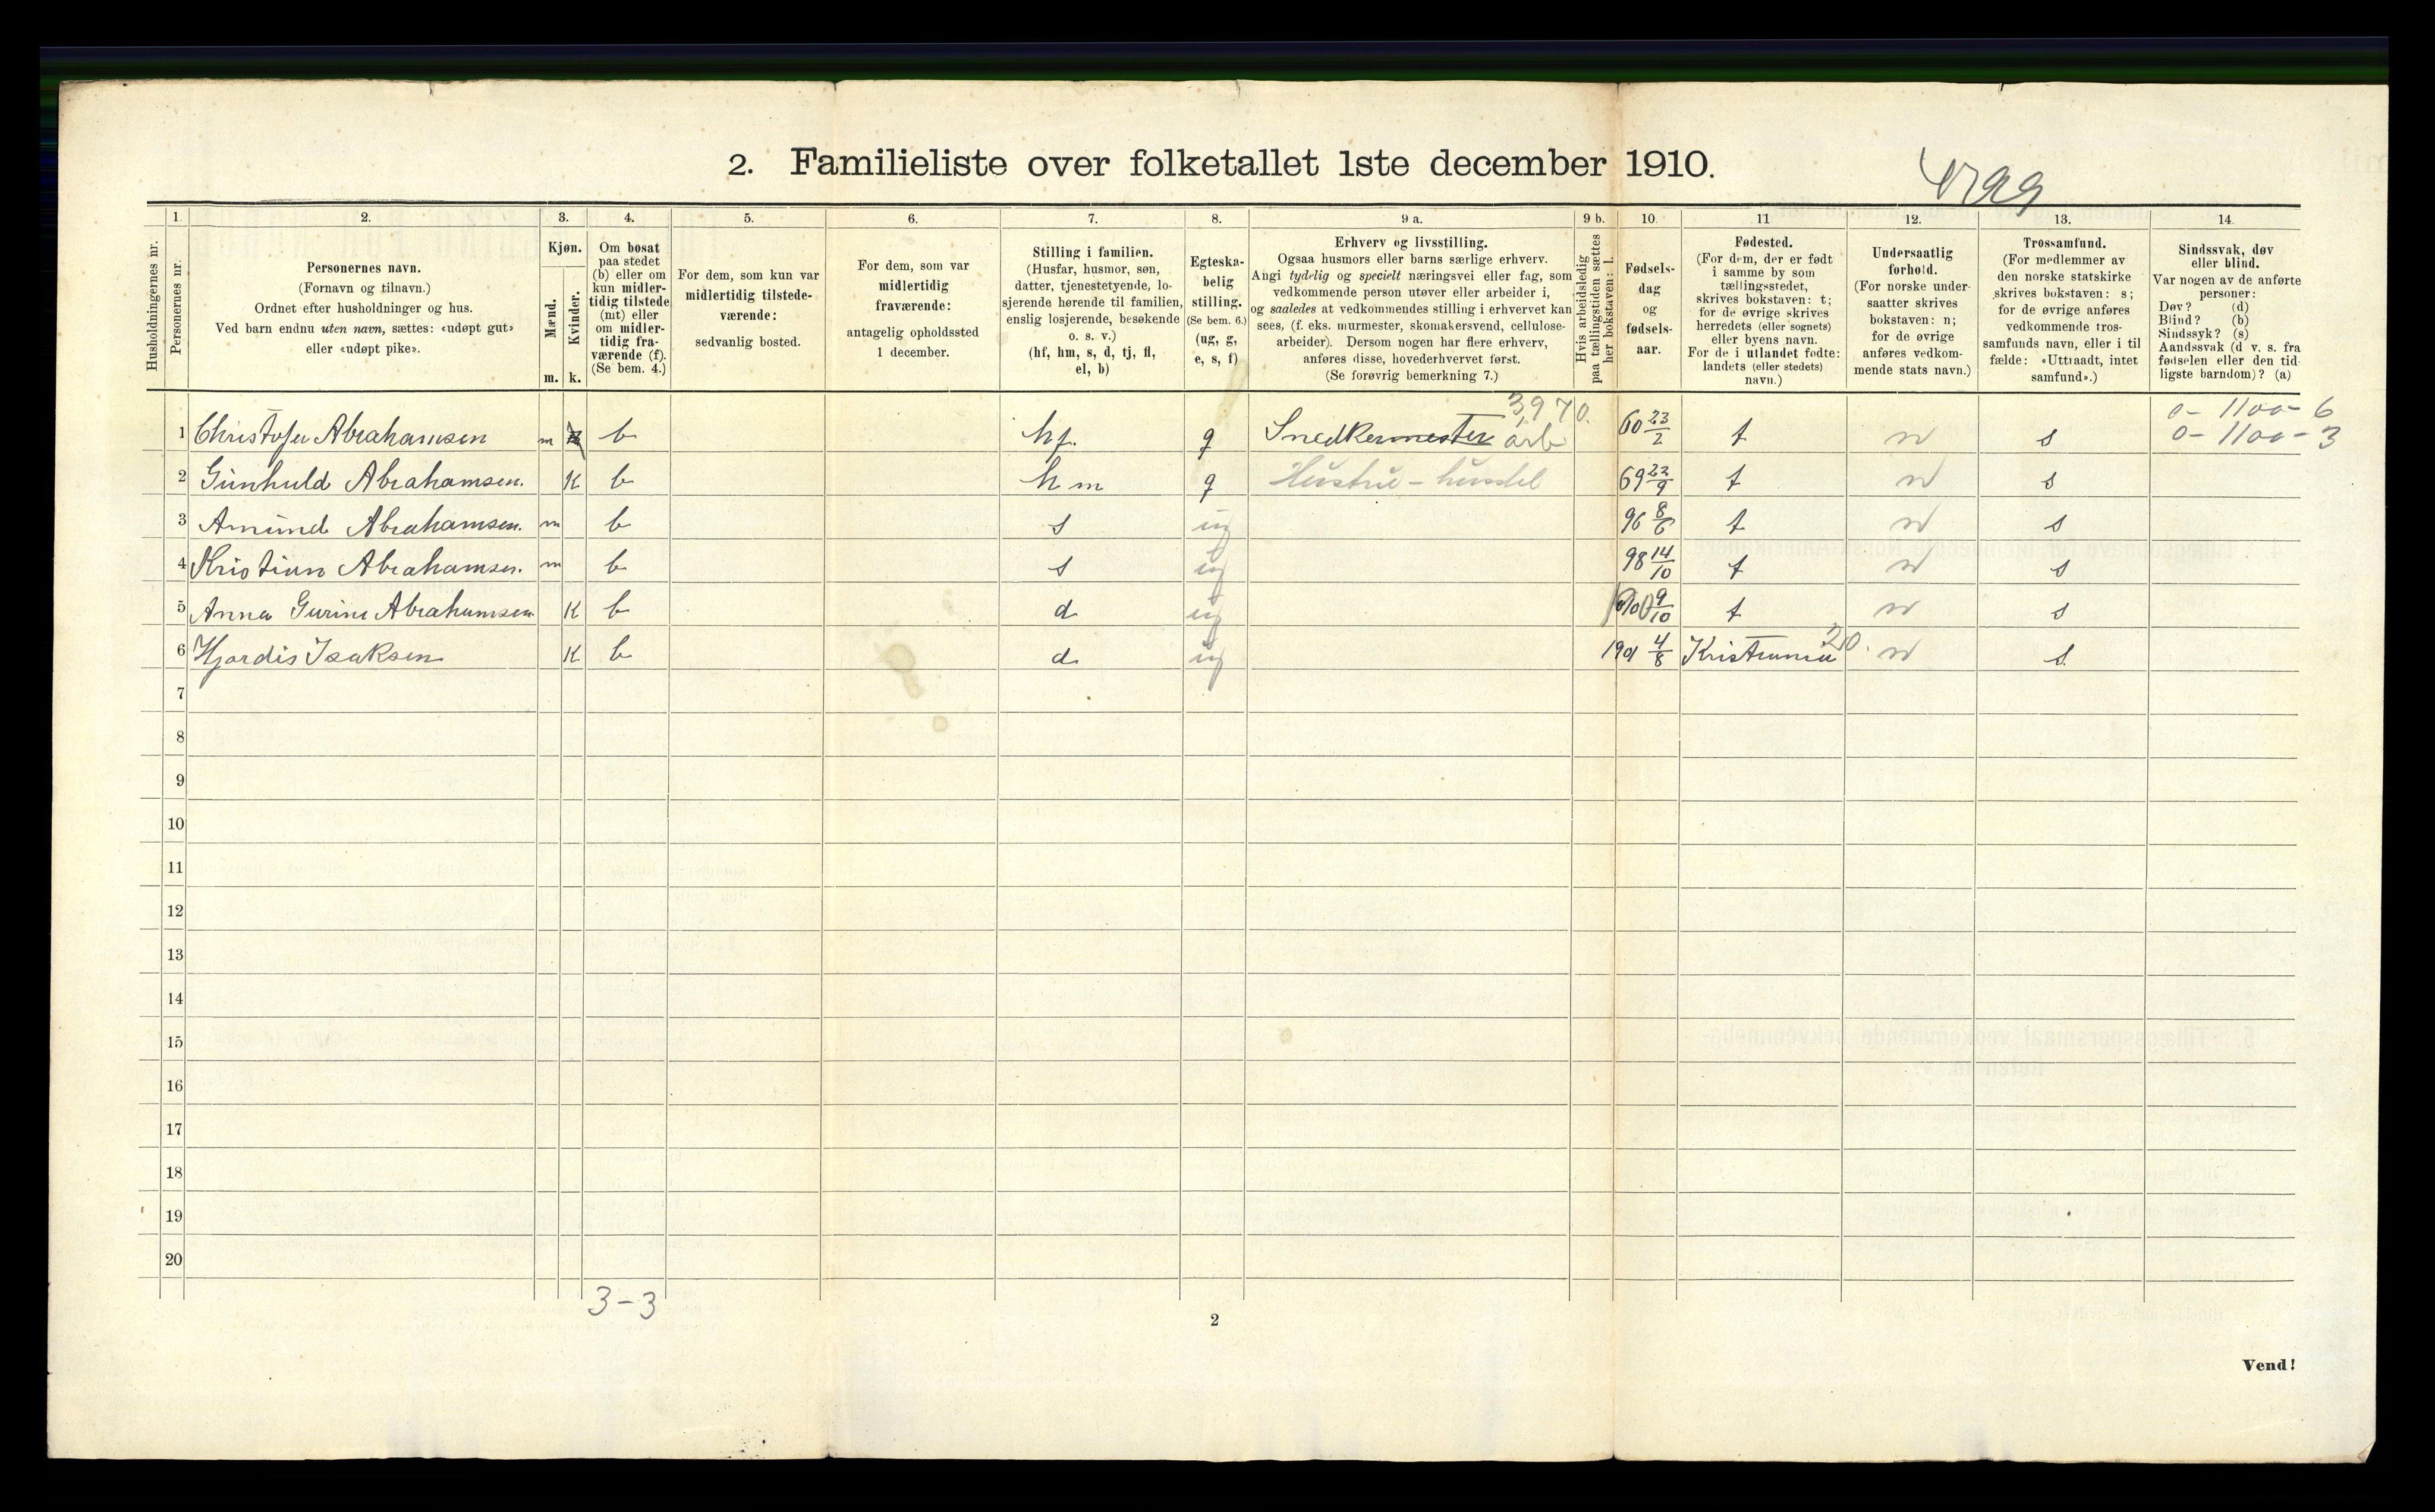 2. Familieliste over folketallet 1ste december 1910.
Husholdningernes nr.
1.
Personernes nr.
2.
Personernes navn.
(Fornavn og tilnavn.)
Ordnet efter husholdninger og hus.
Ved barn endnu uten navn, sættes: «udøpt gut»
eller «udøpt pike».
3.
Kjøn.
Mænd.
Kvinder.
m. k.
4.
Om bosat
paa stedet
(b) eller om
kun midler-
tidig tilstede
(mt) eller
om midler-
tidig fra-
værende (f).
(Se bem. 4.)
5.
For dem, som kun var
midlertidig tilstede-
værende:
sedvanlig bosted.
6.
For dem, som var
midlertidig
fraværende:
antagelig opholdssted
1 december.
7.
Stilling i familien.
(Husfar, husmor, søn,
datter, tjenestetyende, lo-
sjerende hørende til familien,
enslig losjerende, besøkende
o. s. v.)
(hf, hm, s, d, tj, fl,
el, b)
8.
Egteska-
belig
stilling.
(Se bem. 6.)
(ug, g,
e, s, f)
9 a.
Erhverv og livsstilling.
Ogsaa husmors eller barns særlige erhverv.
Angi tydelig og specielt næringsvei eller fag, som
vedkommende person utøver eller arbeider i,
og saaledes at vedkommendes stilling i erhvervet kan
sees, (f. eks. murmester, skomakersvend, cellulose-
arbeider). Dersom nogen har flere erhverv,
anføres disse, hovederhvervet først.
(Se forøvrig bemerkning 7.)
9 b.
Hvis arbeidsledig
paa tællingstiden sættes
her bokstaven: l.
10.
Fødsels-
dag
og
fødsels-
aar.
11
Fødested.
(For dem, der er født
i samme by som
tællingsstedet,
skrives bokstaven: t;
for de øvrige skrives
herredets (eller sognets)
eller byens navn.
For de i utlandet fødte:
landets (eller stedets)
navn.)
12.
Undersaatlig
forhold.
(For norske under-
saatter skrives
bokstaven: n;
for de øvrige
anføres vedkom-
mende stats navn.)
13.
Trossamfund.
(For medlemmer av
den norske statskirke
skrives bokstaven: s;
for de øvrige anføres
vedkommende tros-
samfunds navn, eller i til
fælde: «Uttraadt, intet
samfund».)
14.
Sindssvak, døv
eller blind.
Var nogen av de anførte
personer:
Døv? (d)
Blind? (b)
Sindssyk? (s)
Aandssvak (d v. s. fra
fødselen eller den tid-
ligste barndom)? (a)
3970. 0- 1100- 6
1 Christofer Abrahamsen m k b hf. g Snedkermester arb 60 23/2 t n s 0- 1100- 3
2 Gunhuld Abrahamsen. K b hm g Hustru - husstel 69 23/9 t n s
3 Amund Abrahamsen. m b s ug 96 8/6 t n s
4 Kristian Abrahamsen. m b s ug 98 14/10 t n s
5 Anna Gurine Abrahamsen K b d ug 9/10 t n s
6 Hjordis Isaksen K b d ug 1901 4/8 Kristiania 20. n s.
7
8
9
10
11
12
13
14
15
16
17
18
19
20
3-3
2
Vend!